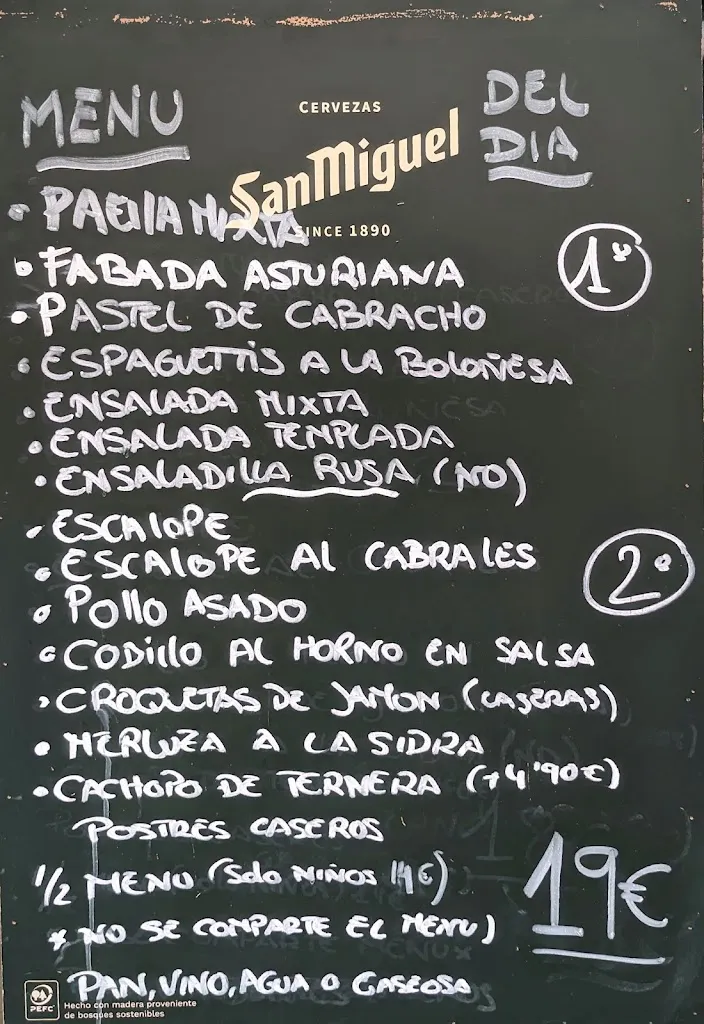 MENU DEL DIA
CERVEZAS
San Miguel
SINCE 1890
• PAELLA MIXTA
• FABADA ASTURIANA
1º
• PASTEL DE CABRACHO
• ESPAGUETTIS A LA BOLOÑESA
• ENSALADA MIXTA
• ENSALADA TEMPLADA
• ENSALADILLA RUSA (NO)
• ESCALOPE
• ESCALOPE AL CABRALES
2º
• POLLO ASADO
• CODILLO AL HORNO EN SALSA
• CROQUETAS DE JAMON (CASERAS)
• MERLUZA A LA SIDRA
• CACHOPO DE TERNERA (+4'90€)
POSTRES CASEROS
1/2 MENU (Solo NIÑOS 14€)
19€
* NO SE COMPARTE EL MENU)
PAN, VINO, AGUA O GASEOSA
PEFC
Hecho con madera proveniente
de bosques sostenibles